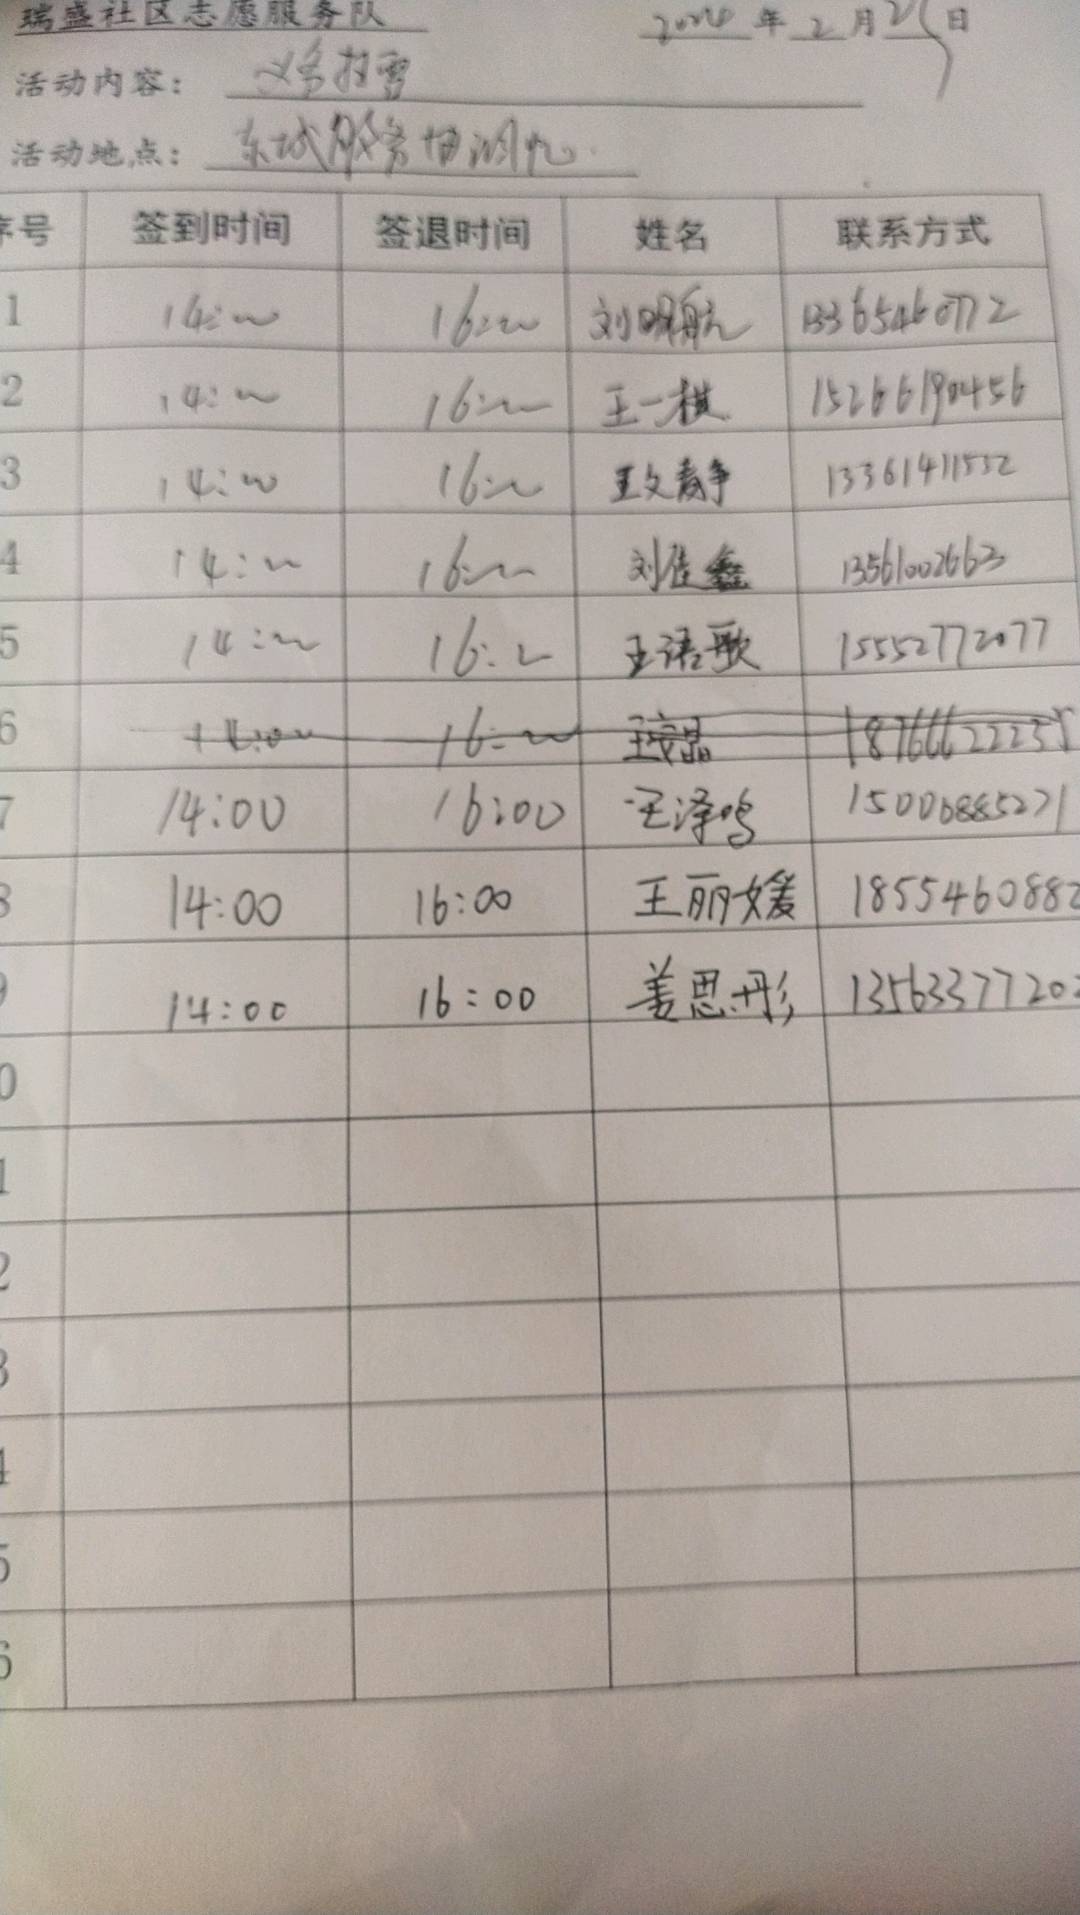 瑞盛社区志愿服务队 2024年2月25日
活动内容： 义务扫雪
活动地点： 东城服务
序号 签到时间 签退时间 姓名 联系方式
1 14:00 16:00 刘明航 13365460772
2 14:00 16:00 王一棋 15266190456
3 14:00 16:00 王文静 13361411552
4 14:00 16:00 刘佳鑫 13561002663
5 14:00 16:00 王语歌 15552772077
6 14:00 16:00 18766622235
7 14:00 16:00 王泽鸣 15006885271
8 14:00 16:00 王丽媛 1855460882
9 14:00 16:00 姜思彤 1356337720
0
1
2
3
4
5
6